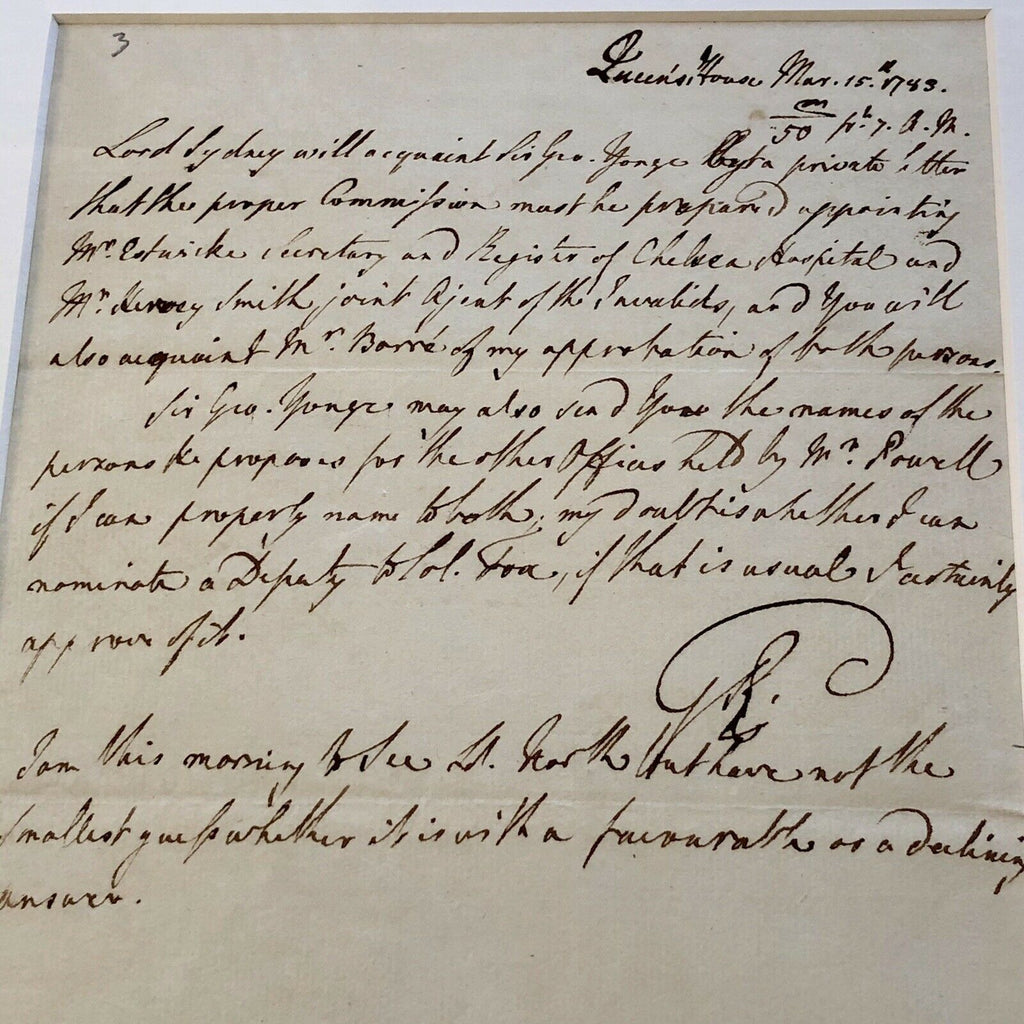 3
Queen's House Mar. 15th 1783.
m/50 pt 7. A.M.
Lord Sydney will acquaint Sir Geo. Yonge by a private letter
that the proper Commission must be prepared appointing
Mr. Estwicke Secretary and Register of Chelsea Hospital and
Mr. Hervey Smith joint Agent of the Invalids, and You will
also acquaint Mr. Barré of my approbation of both persons.
Sir Geo. Yonge may also send You the names of the
persons he proposes for the other Offices held by Mr. Powell
if I can properly name to both; my doubt is whether I can
nominate a Deputy to Col. Fox, if that is usual I certainly
approve of it.
GR.
I am this morning to See Ld. North but have not the
smallest guess whether it is with a favourable or a declining
answer.